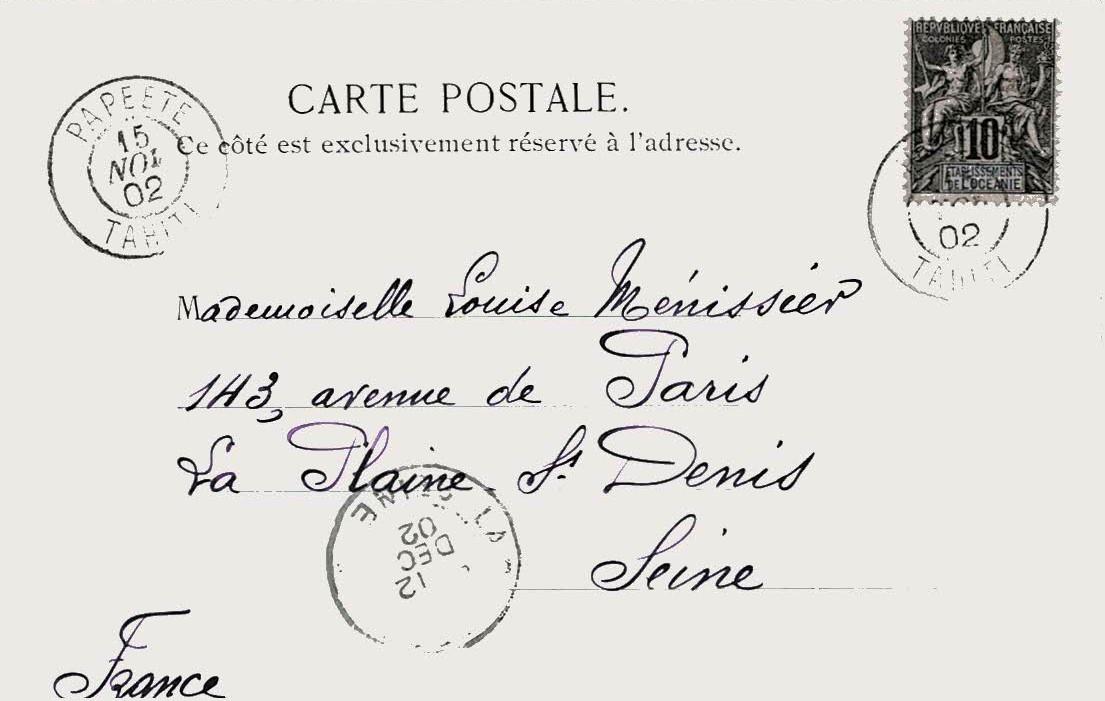 REPVBLIQVE FRANÇAISE
COLONIES POSTES
10
ETABLISSEMENTS
DE L'OCEANIE
CARTE POSTALE.
Ce côté est exclusivement réservé à l'adresse.
PAPEETE
15
NOV
02
TAHITI
02
TAHITI
Mademoiselle Louise Ménissier
143, avenue de Paris
La Plaine St. Denis
Seine
LA
12
DEC
02
France